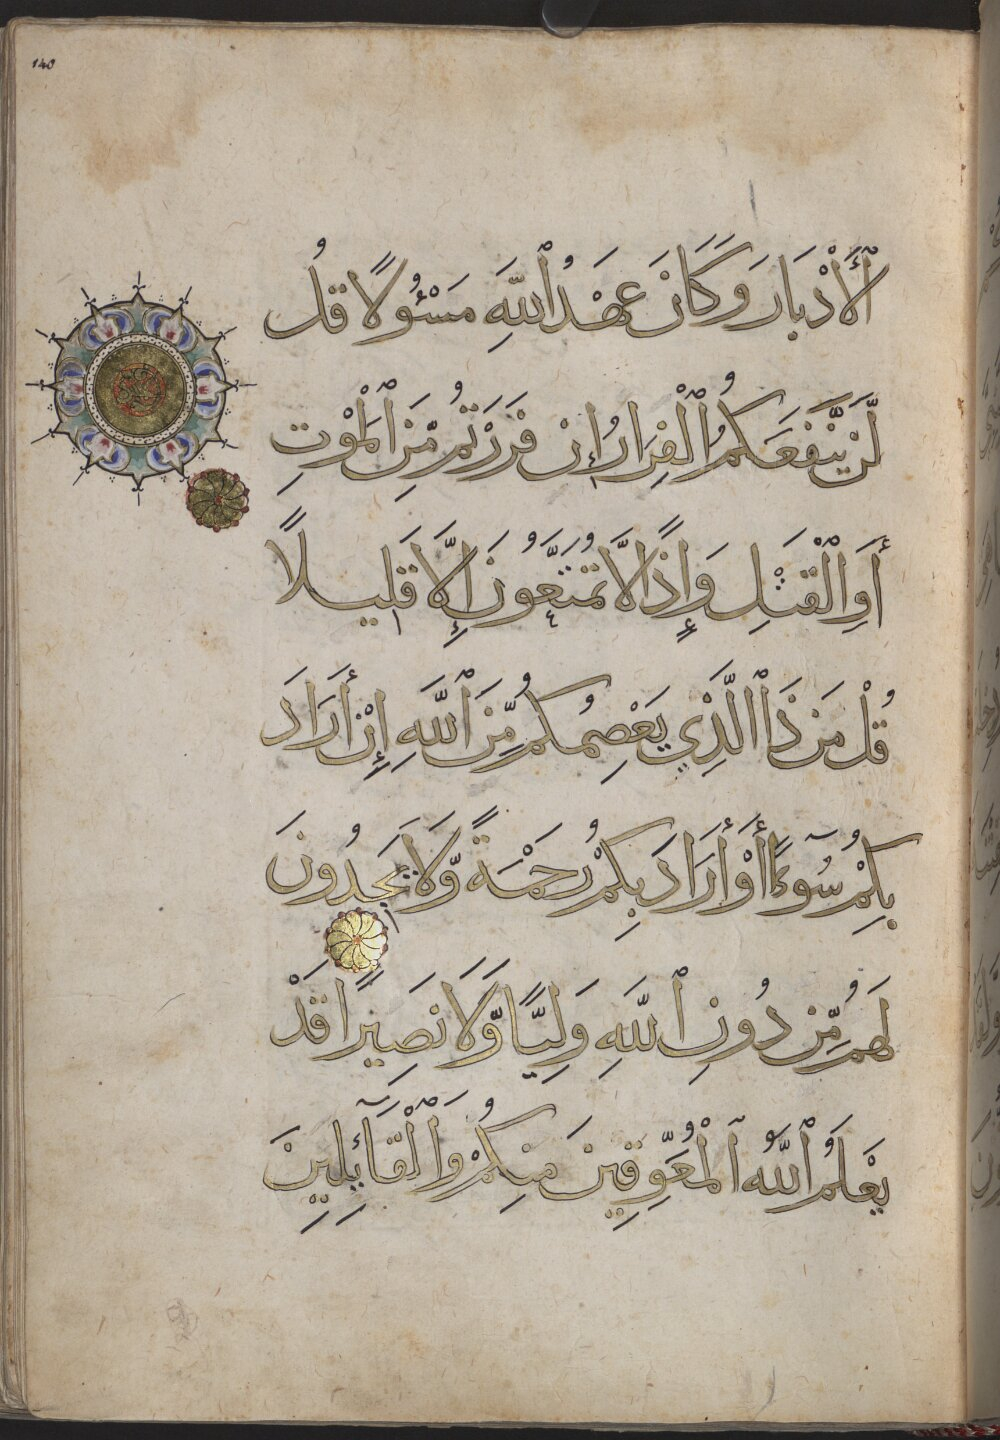 140
ٱلْأَدْبَارَ وَكَانَ عَهْدُ ٱللَّهِ مَسْئُولًا قُل
لَّن يَّنفَعَكُمُ ٱلْفِرَارُ إِن فَرَرْتُم مِّنَ ٱلْمَوْتِ
أَوِ ٱلْقَتْلِ وَإِذًا لَّا تُمَتَّعُونَ إِلَّا قَلِيلًا
قُلْ مَن ذَا ٱلَّذِي يَعْصِمُكُم مِّنَ ٱللَّهِ إِنْ أَرَادَ
بِكُمْ سُوٓءًا أَوْ أَرَادَ بِكُمْ رَحْمَةً وَّلَا يَجِدُونَ
لَهُم مِّن دُونِ ٱللَّهِ وَلِيًّا وَّلَا نَصِيرًا قَدْ
يَعْلَمُ ٱللَّهُ ٱلْمُعَوِّقِينَ مِنكُمْ وَٱلْقَآئِلِينَ